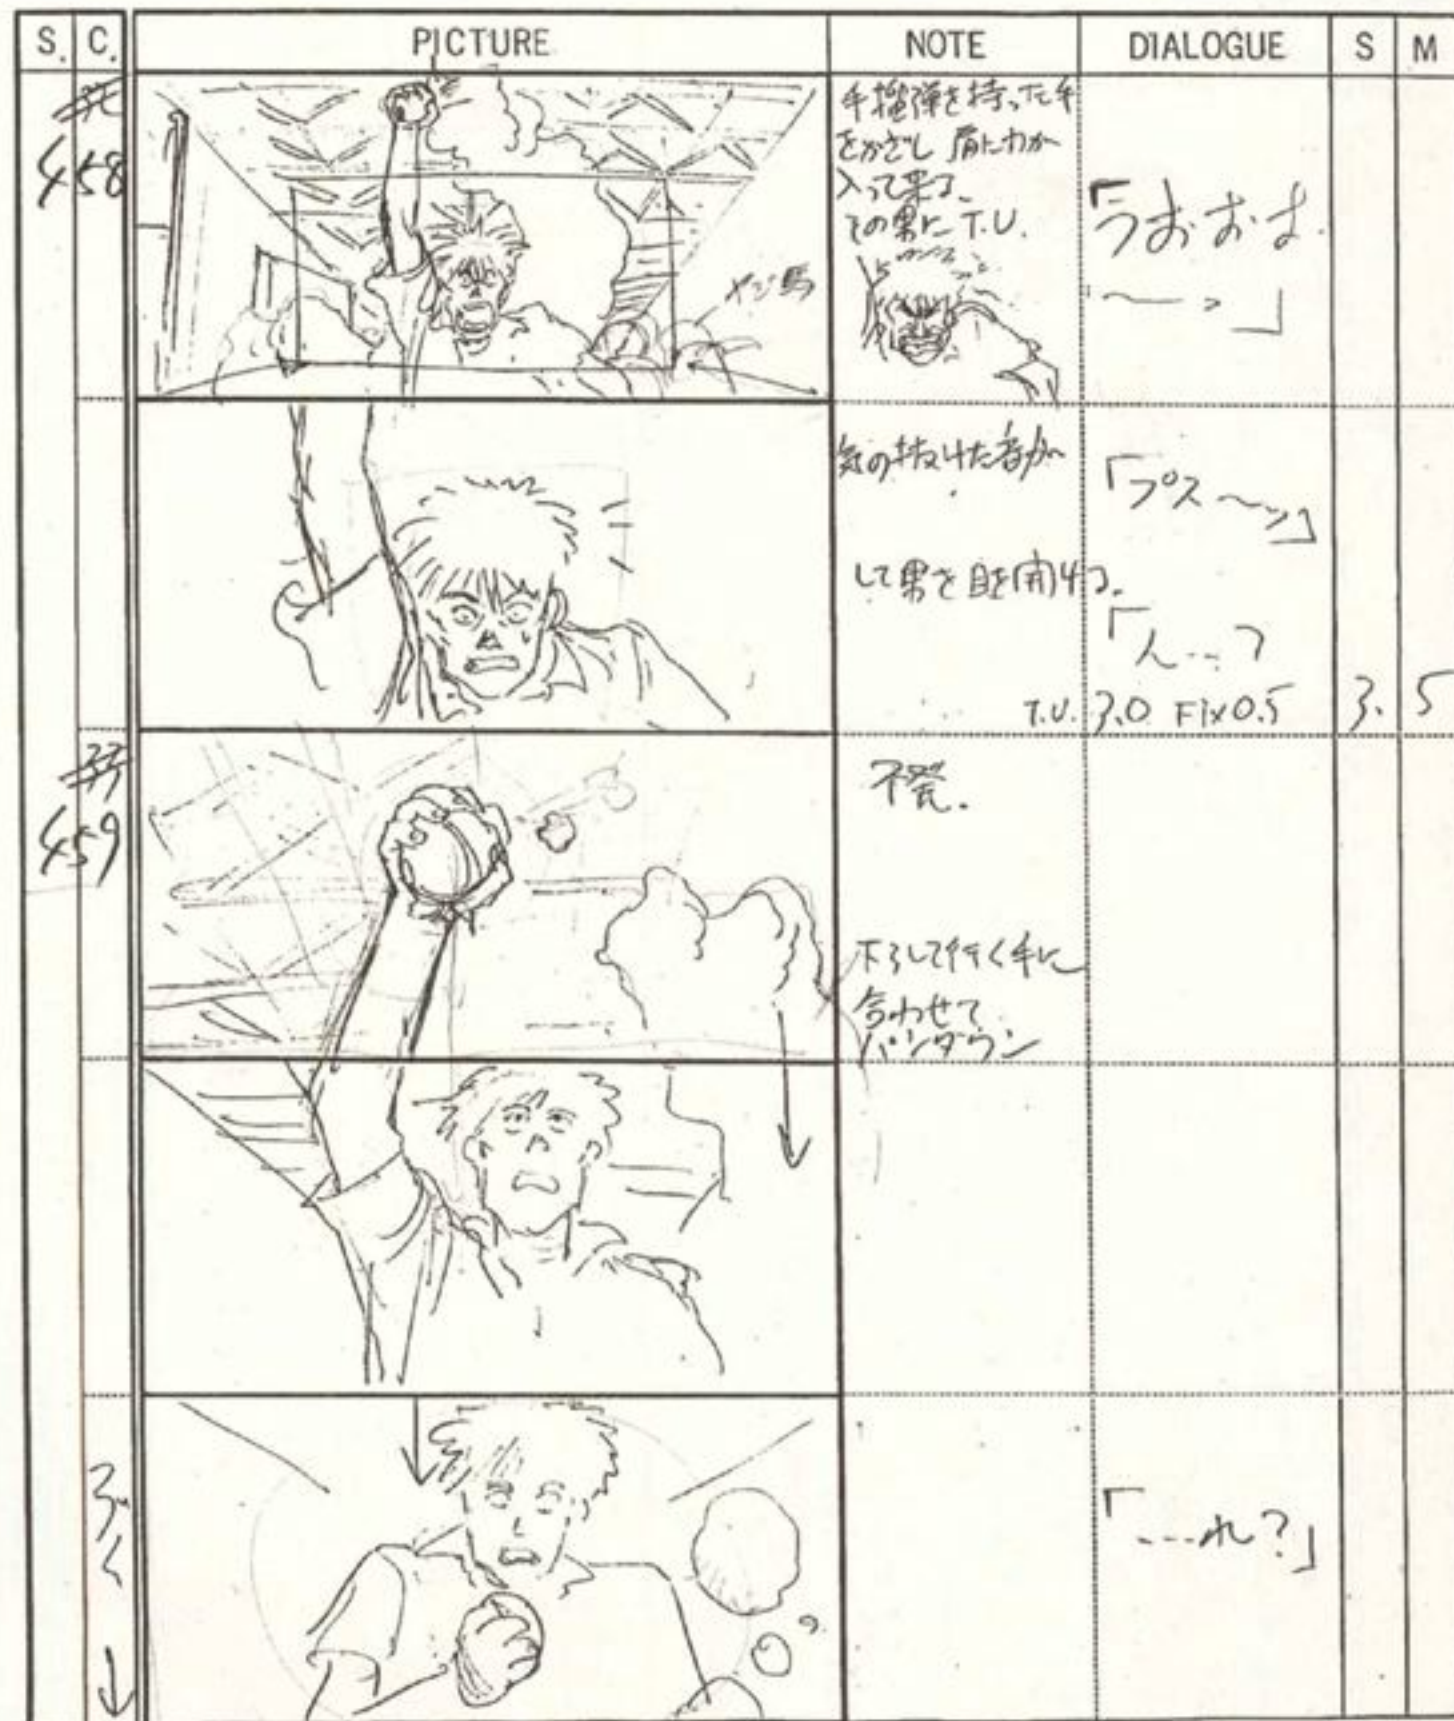 S. C. PICTURE NOTE DIALOGUE S M
458
手榴弾を持った手
をかざし 肩に力が
入って来る、
その男に T.U.
ヤジ馬
「うおおお
〜っ」
気の抜けた音が
「プス〜ッ」
して男を目を開ける。
「ん...?
T.U. 3.0 Fix 0.5 3. 5
459
不発.
下ろして行く手に
合わせて
パンダウン
「...れ?」